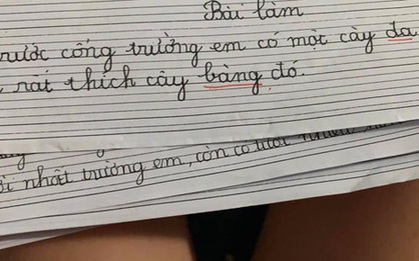 Bài làm
rước cổng trường em có một cây đa
rất thích cây bàng đó.
ồi nhất trường em, còn có